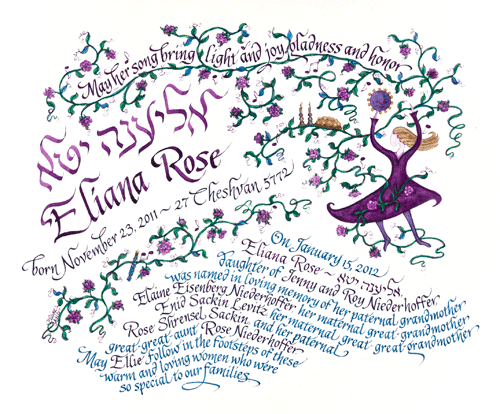 May her song bring light and joy, gladness and honor
אליענה
Eliana Rose
born November 23, 2011 ~ 27 Cheshvan 5772
On January 15, 2012
Eliana Rose ~ אליענה
daughter of Jenny and Roy Niederhoffer
was named in loving memory of her paternal grandmother
Elaine Eisenberg Niederhoffer her maternal great-grandmother
Enid Sackin Levitz her maternal great-great-grandmother
Rose Shrensel Sackin and her paternal
great-great aunt Rose Niederhoffer
May Ellie follow in the footsteps of these
warm and loving women who were
so special to our families